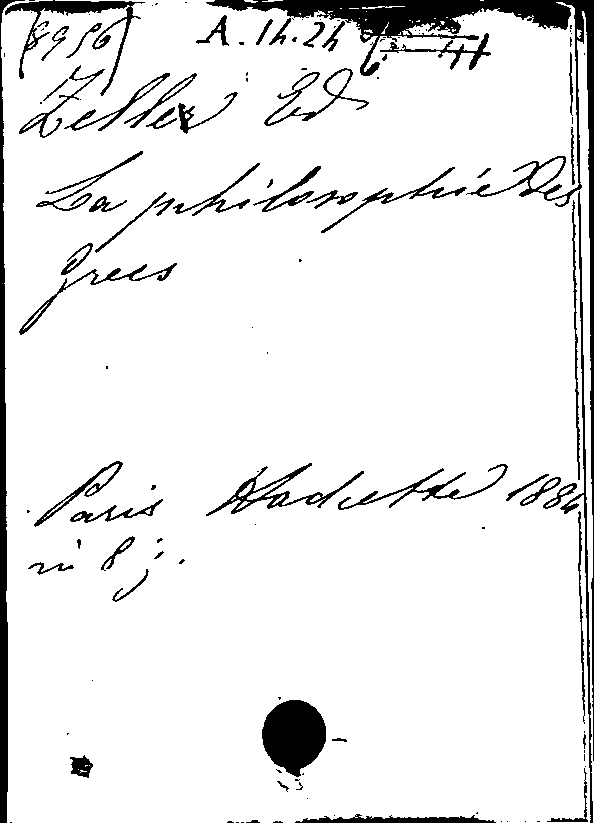 (8956) A.14.24
Zeller Ed
La philosophie des
Grecs
Paris Hachette 1884
in 8